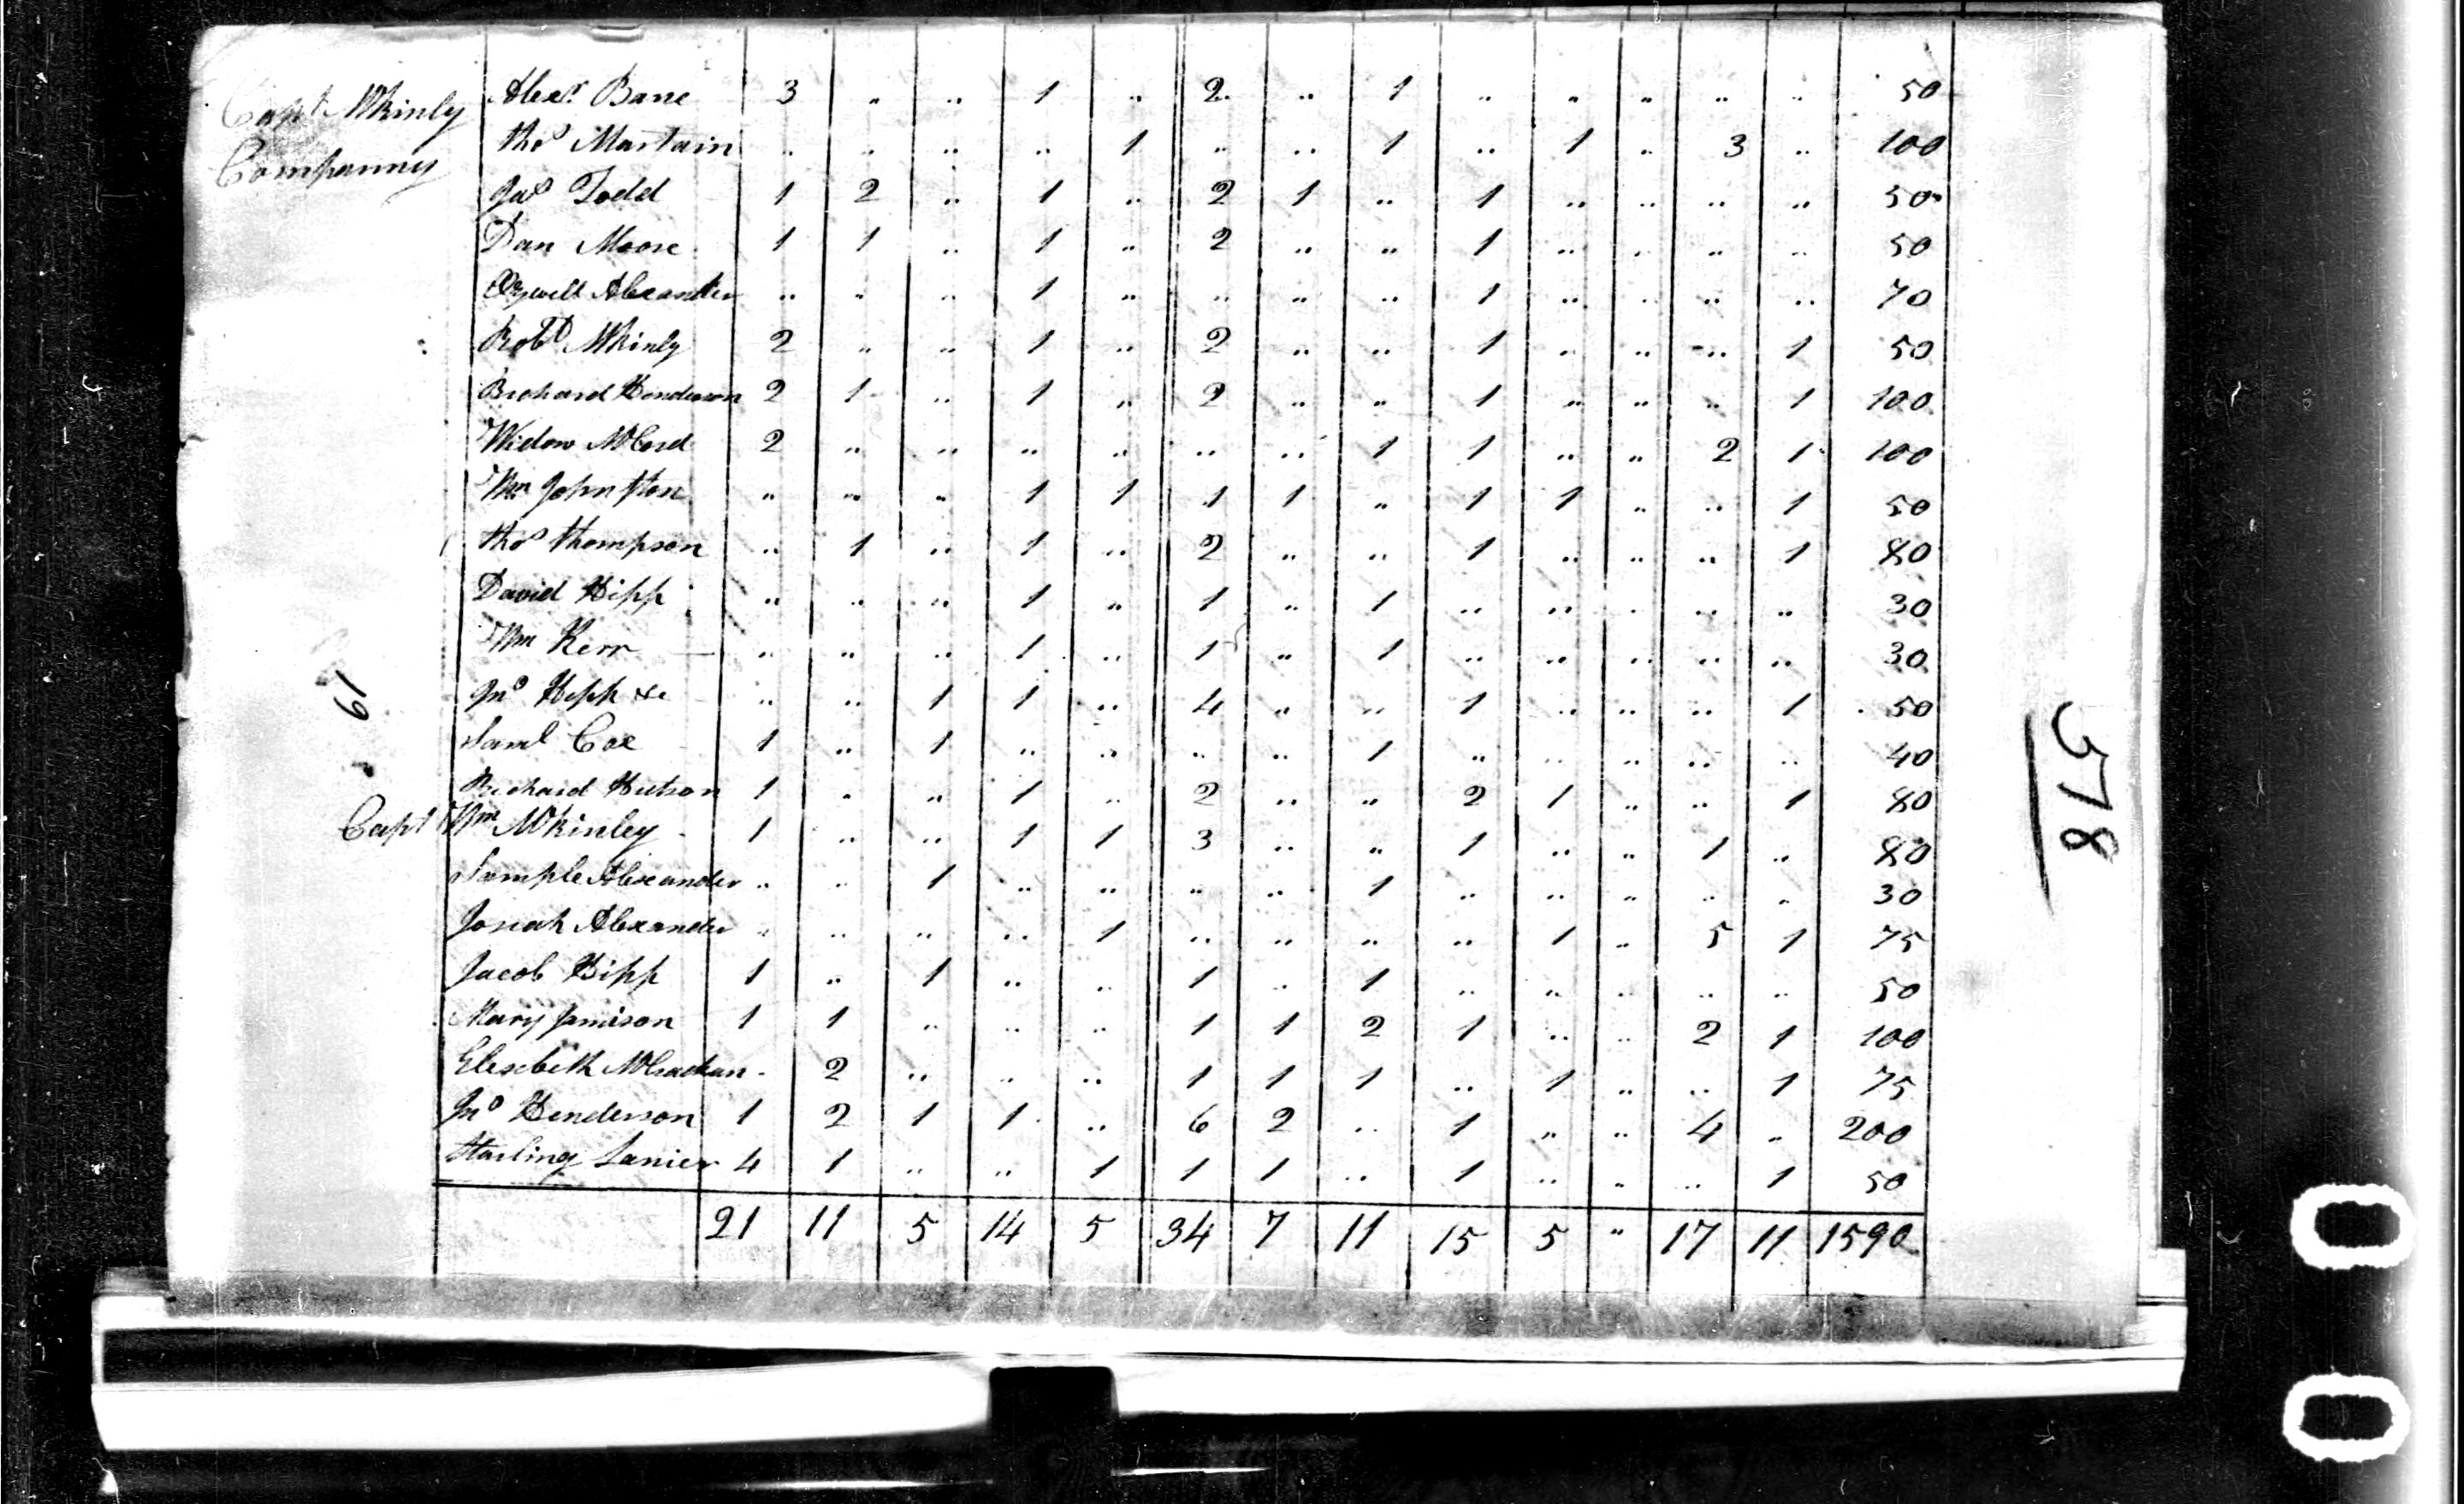 Capt McKinly
Companny
Alexr. Bane 3 .. .. 1 .. 2 .. 1 .. .. .. .. .. 50
Tho Martain .. .. .. .. 1 .. .. 1 .. 1 .. 3 .. 100
Jas Todd 1 2 .. 1 .. 2 1 .. 1 .. .. .. .. 50
Dan Moore 1 1 .. 1 .. 2 .. .. 1 .. .. .. .. 50
Alexander .. .. .. 1 .. .. .. .. 1 .. .. .. .. 70
Robt McKinly 2 .. .. 1 .. 2 .. .. 1 .. .. .. 1 50
Henderson 2 1 .. 1 .. 2 .. .. 1 .. .. .. 1 100
Widow McCord 2 .. .. .. .. .. .. 1 1 .. .. 2 1 100
Wm Johnston .. .. .. 1 1 1 1 .. 1 1 .. .. 1 50
Tho Thompson .. 1 .. 1 .. 2 .. .. 1 .. .. .. 1 80
David Hipp .. .. .. 1 .. 1 .. 1 .. .. .. .. .. 30
Wm Kerr .. .. .. 1 .. 1 .. 1 .. .. .. .. .. 30
Jno Hipp .. .. 1 1 .. 4 .. .. 1 .. .. .. 1 50
Saml Cox 1 .. 1 .. .. .. .. 1 .. .. .. .. .. 40
Richard Hutson 1 .. .. 1 .. 2 .. .. 2 1 .. .. 1 80
Capt Wm McKinley 1 .. .. 1 1 3 .. .. 1 .. .. 1 .. 80
Sample Alexander .. .. 1 .. .. .. .. 1 .. .. .. .. .. 30
Josiah Alexander .. .. .. .. 1 .. .. .. .. 1 .. 5 1 75
Jacob Hipp 1 .. 1 .. .. 1 .. 1 .. .. .. .. .. 50
Mary Jamison 1 1 .. .. .. 1 1 2 1 .. .. 2 1 100
Elesebeth McCrackan .. 2 .. .. .. 1 1 1 .. 1 .. .. 1 75
Jno Henderson 1 2 1 1 .. 6 2 .. 1 .. .. 4 .. 200
Starling Lanier 4 1 .. .. 1 1 1 .. 1 .. .. .. 1 50
21 11 5 14 5 34 7 11 15 5 .. 17 11 1590
19
578